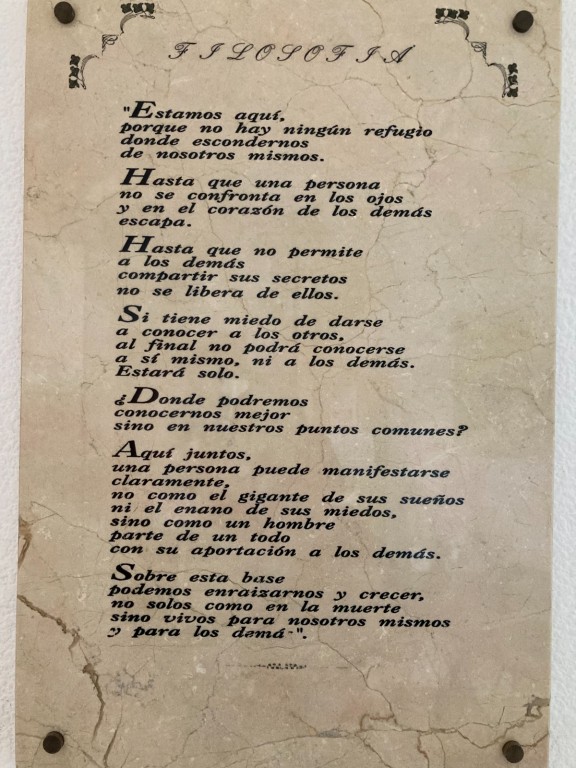 FILOSOFIA
"Estamos aquí,
porque no hay ningún refugio
donde escondernos
de nosotros mismos.
Hasta que una persona
no se confronta en los ojos
y en el corazón de los demás
escapa.
Hasta que no permite
a los demás
compartir sus secretos
no se libera de ellos.
Si tiene miedo de darse
a conocer a los otros,
al final no podrá conocerse
a sí mismo, ni a los demás.
Estará solo.
¿Donde podremos
conocernos mejor
sino en nuestros puntos comunes?
Aquí juntos,
una persona puede manifestarse
claramente,
no como el gigante de sus sueños
ni el enano de sus miedos,
sino como un hombre
parte de un todo
con su aportación a los demás.
Sobre esta base
podemos enraizarnos y crecer,
no solos como en la muerte
sino vivos para nosotros mismos
y para los demás".